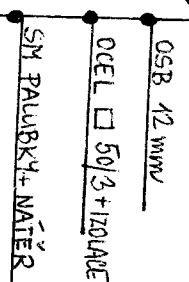 OSB 12 mm
OCEL □ 50/3 + IZOLACE
SM PALUBKY + NÁTĚR